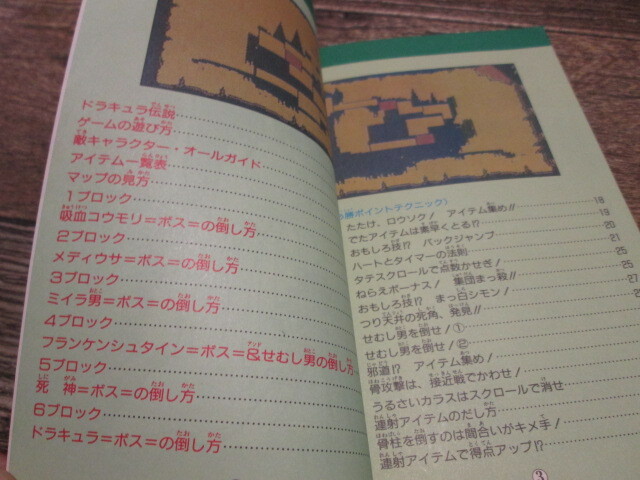 ドラキュラ伝説
ゲームの遊び方
敵キャラクター・オールガイド
アイテム一覧表
マップの見方
1ブロック
吸血コウモリ=ボス=の倒し方
2ブロック
メディウサ=ボス=の倒し方
3ブロック
ミイラ男=ボス=の倒し方
4ブロック
フランケンシュタイン=ボス=&せむし男の倒し方
5ブロック
死神=ボス=の倒し方
6ブロック
ドラキュラ=ボス=の倒し方
勝ポイントテクニック〉
たたけ、ロウソク! アイテム集め!! 18
でたアイテムは素早くとる!? 19
おもしろ技!? バックジャンプ 20
ハートとタイマーの法則 21
タテスクロールで点数かせぎ! 25
ねらえボーナス! 集団まっ殺!! 25
おもしろ技!? まっ白シモン! 27
つり天井の死角、発見!!
せむし男を倒せ! ①
せむし男を倒せ! ②
邪道!? アイテム集め!
骨攻撃は、接近戦でかわせ!
うるさいカラスはスクロールで消せ
連射アイテムのだし方
骨柱を倒すのは間合いがキメ手!
連射アイテムで得点アップ!?
③